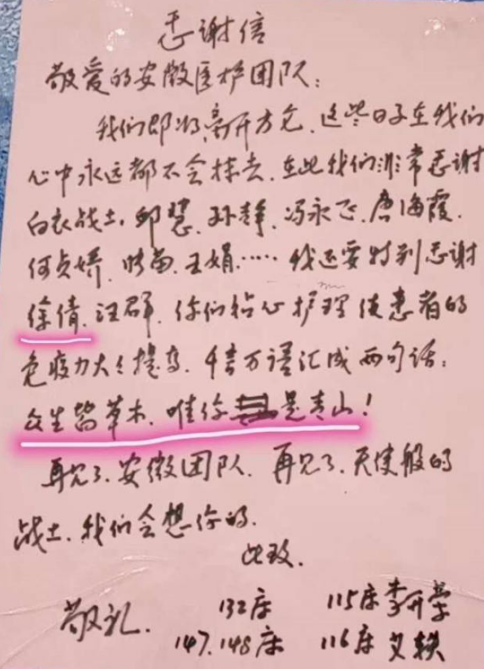 感谢信
敬爱的安徽医护团队:
我们即将离开方仓.这些日子在我们
心中永远都不会抹去.在此我们非常感谢
白衣战士.邱慧.孙静.冯永飞.唐海霞.
何贞娇.王娟……我还要特别感谢
徐倩.汪群.你们贴心护理使患者的
免疫力大大提高.千言万语汇成两句话:
众生皆草木.唯你是青山!
再见了.安徽团队.再见了.天使般的
战士.我们会想你的.
此致.
敬礼. 132床 115床李开荣
147.148床 116床艾轶